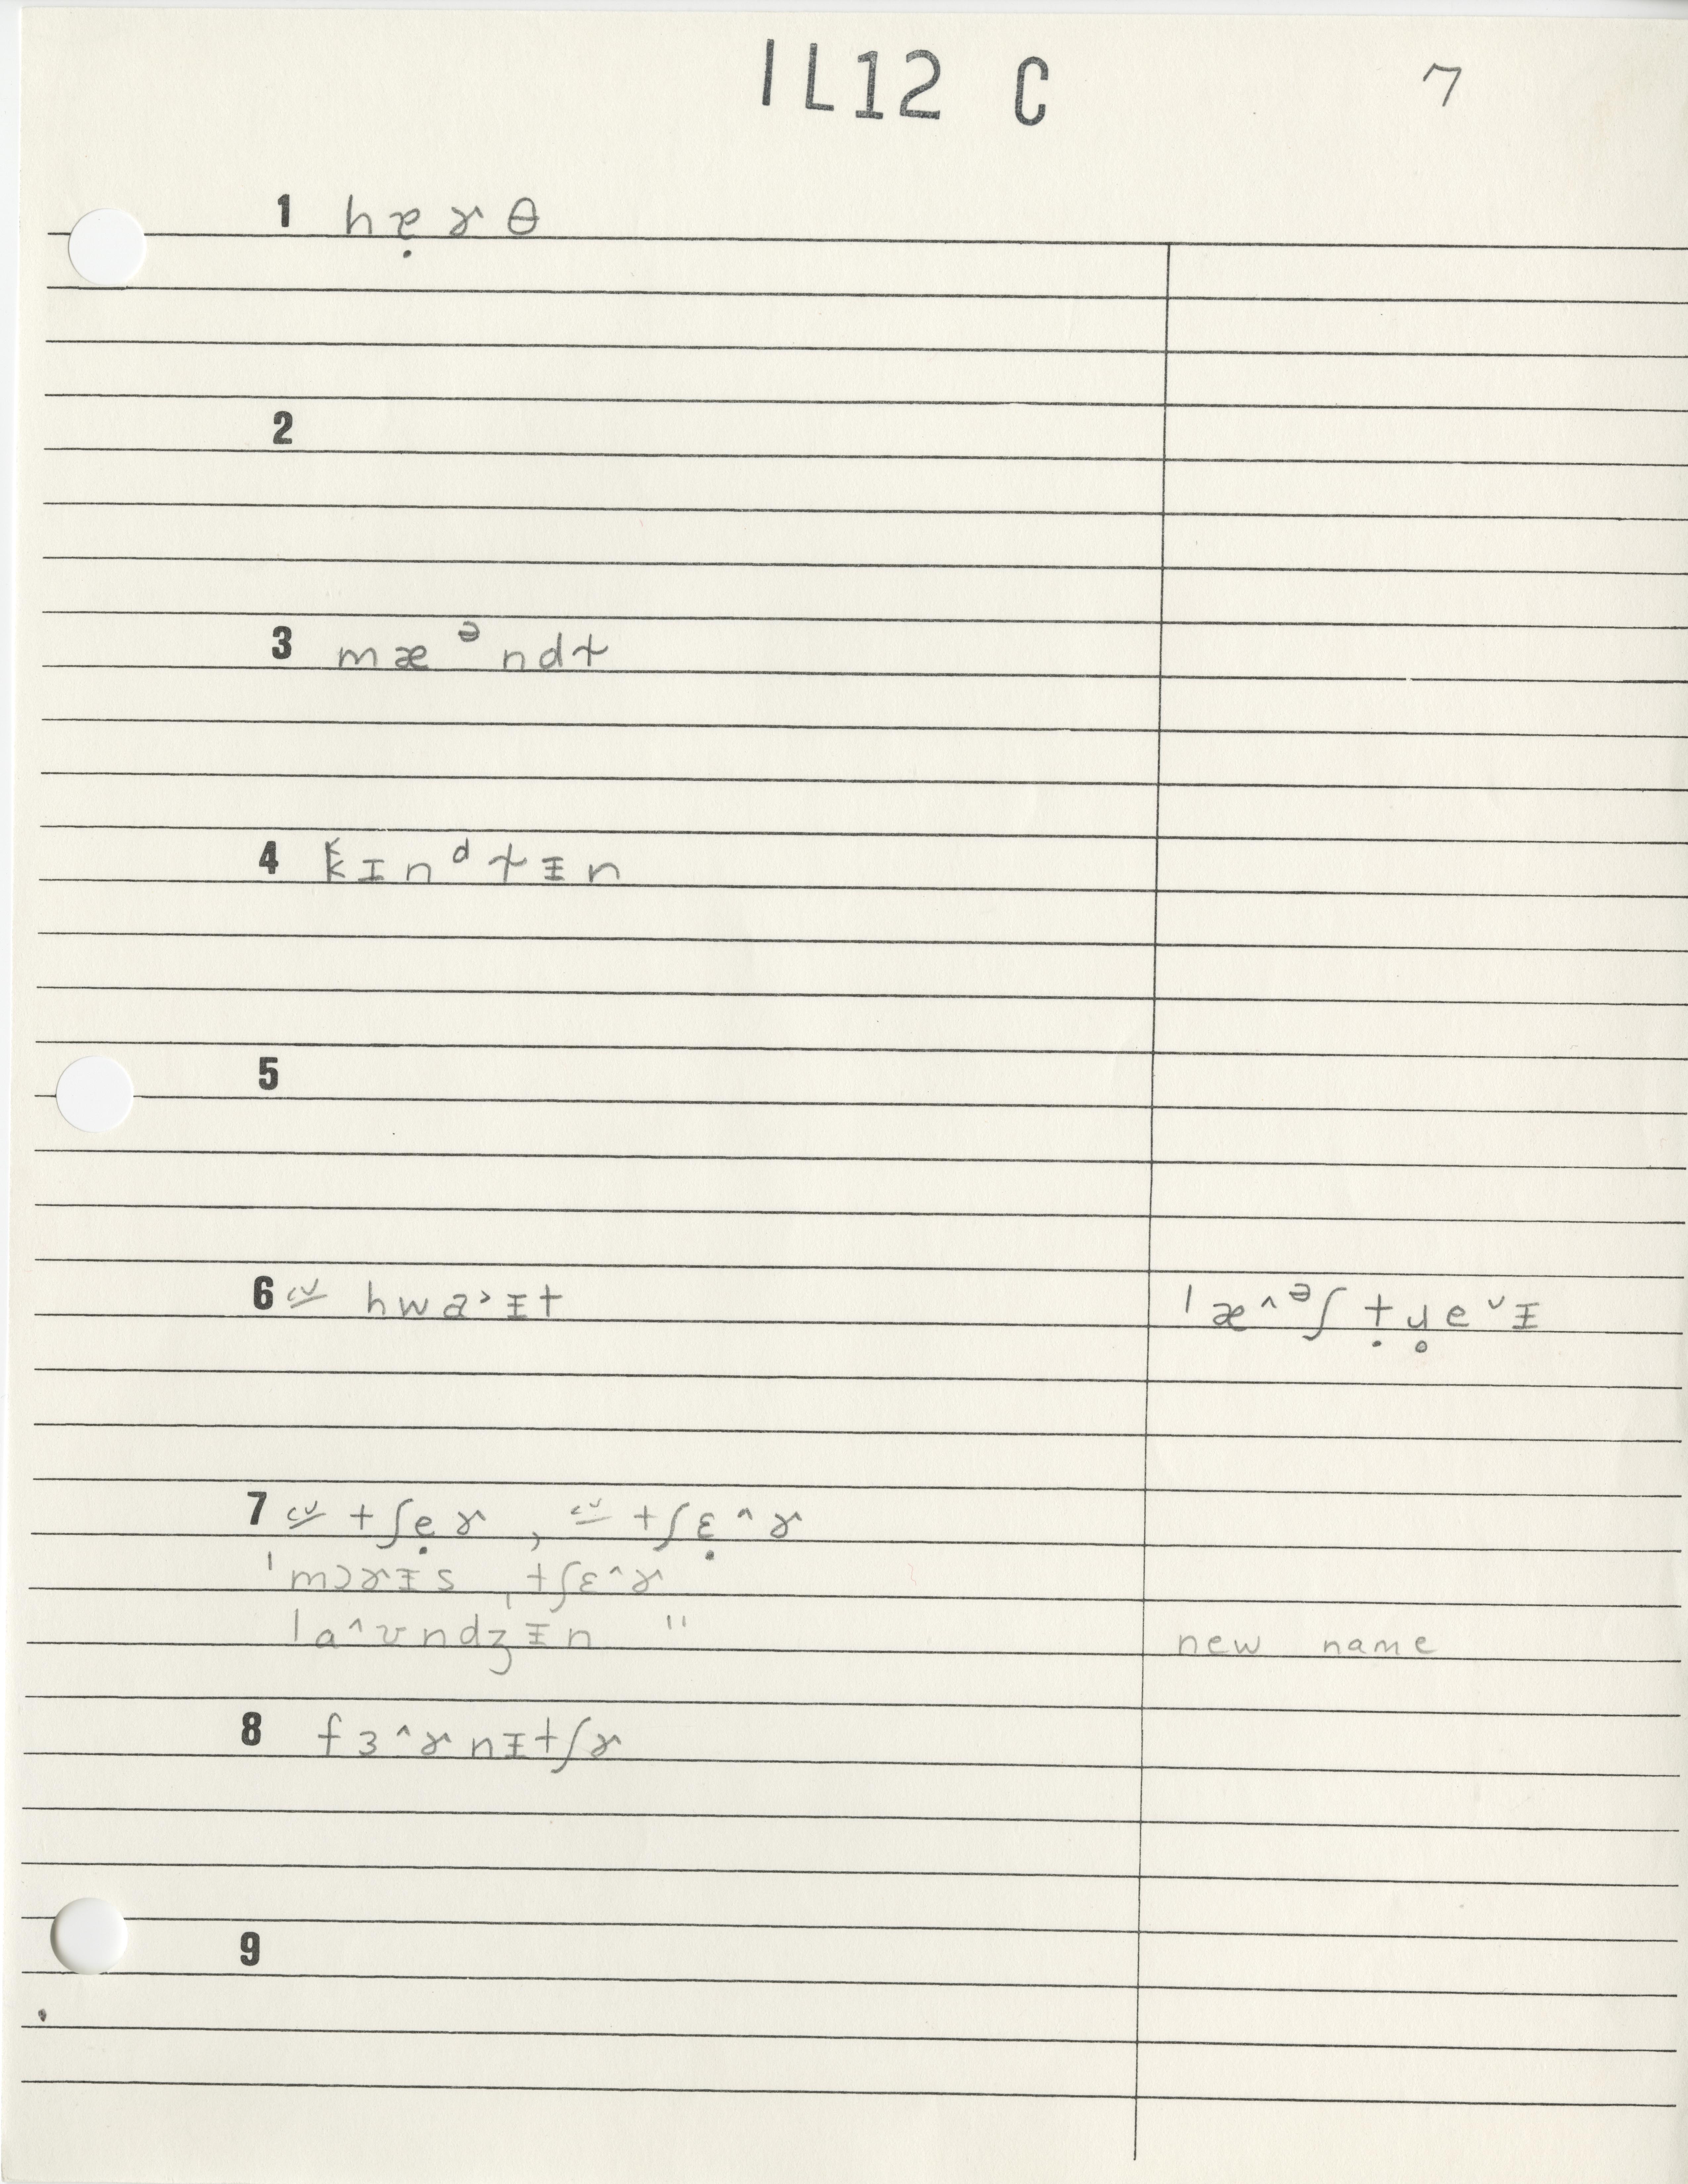 IL12 C 7
1 hæ̣ɤθ
2
3 mæᵊndɫ
4 k̵ɪnᵈɫᵻn
5
6 cv hwa˃ᵻt ˈæ˄ᵊʃṭɹ̥e˅ᵻ
7 cv tʃẹɤ, cv tʃɛ̣˄ɤ
ˈmɔɤᵻs ˌtʃɛ˄ɤ
ˈla˄ʊndʒᵻn " new name
8 fɜ˄ɤnᵻtʃɤ
9